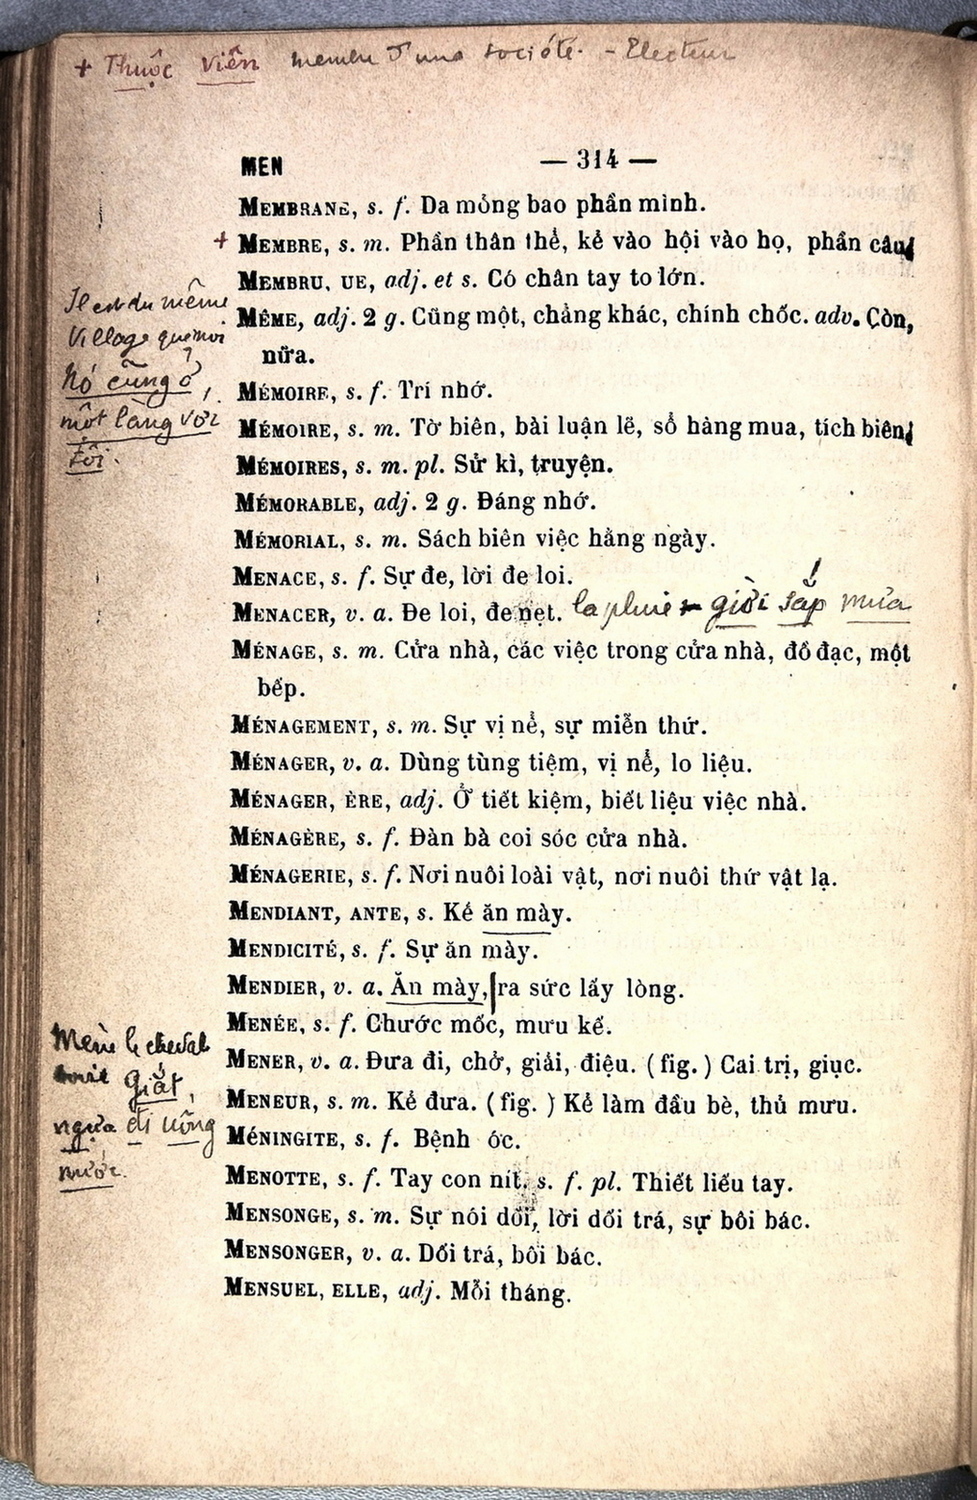 + Thuộc viên membre d'une société - Electeur
MEN — 314 —
MEMBRANE, s. f. Da mỏng bao phần mình.
+ MEMBRE, s. m. Phần thân thể, kẻ vào hội vào họ, phần câu,
MEMBRU, UE, adj. et s. Có chân tay to lớn.
Il est du même
village que moi
Nó cũng ở
một làng với
tôi.
MÊME, adj. 2 g. Cũng một, chẳng khác, chính chốc. adv. Còn,
nữa.
MÉMOIRE, s. f. Trí nhớ.
MÉMOIRE, s. m. Tờ biên, bài luận lẽ, sổ hàng mua, tích biên,
MÉMOIRES, s. m. pl. Sử kì, truyện.
MÉMORABLE, adj. 2 g. Đáng nhớ.
MÉMORIAL, s. m. Sách biên việc hằng ngày.
MENACE, s. f. Sự đe, lời đe loi.
MENACER, v. a. Đe loi, đe nẹt. la pluie giời sắp mưa
MÉNAGE, s. m. Cửa nhà, các việc trong cửa nhà, đồ đạc, một
bếp.
MÉNAGEMENT, s. m. Sự vị nể, sự miễn thứ.
MÉNAGER, v. a. Dùng tùng tiệm, vị nể, lo liệu.
MÉNAGER, ÈRE, adj. Ở tiết kiệm, biết liệu việc nhà.
MÉNAGÈRE, s. f. Đàn bà coi sóc cửa nhà.
MÉNAGERIE, s. f. Nơi nuôi loài vật, nơi nuôi thứ vật lạ.
MENDIANT, ANTE, s. Kẻ ăn mày.
MENDICITÉ, s. f. Sự ăn mày.
MENDIER, v. a. Ăn mày, ra sức lấy lòng.
MENÉE, s. f. Chước mốc, mưu kế.
Mène le cheval
boire giắt
ngựa đi uống
nước.
MENER, v. a. Đưa đi, chở, giải, điệu. (fig.) Cai trị, giục.
MENEUR, s. m. Kẻ đưa. (fig.) Kẻ làm đầu bè, thủ mưu.
MÉNINGITE, s. f. Bệnh óc.
MENOTTE, s. f. Tay con nít. s. f. pl. Thiết liểu tay.
MENSONGE, s. m. Sự nói dối, lời dối trá, sự bôi bác.
MENSONGER, v. a. Dối trá, bôi bác.
MENSUEL, ELLE, adj. Mỗi tháng.